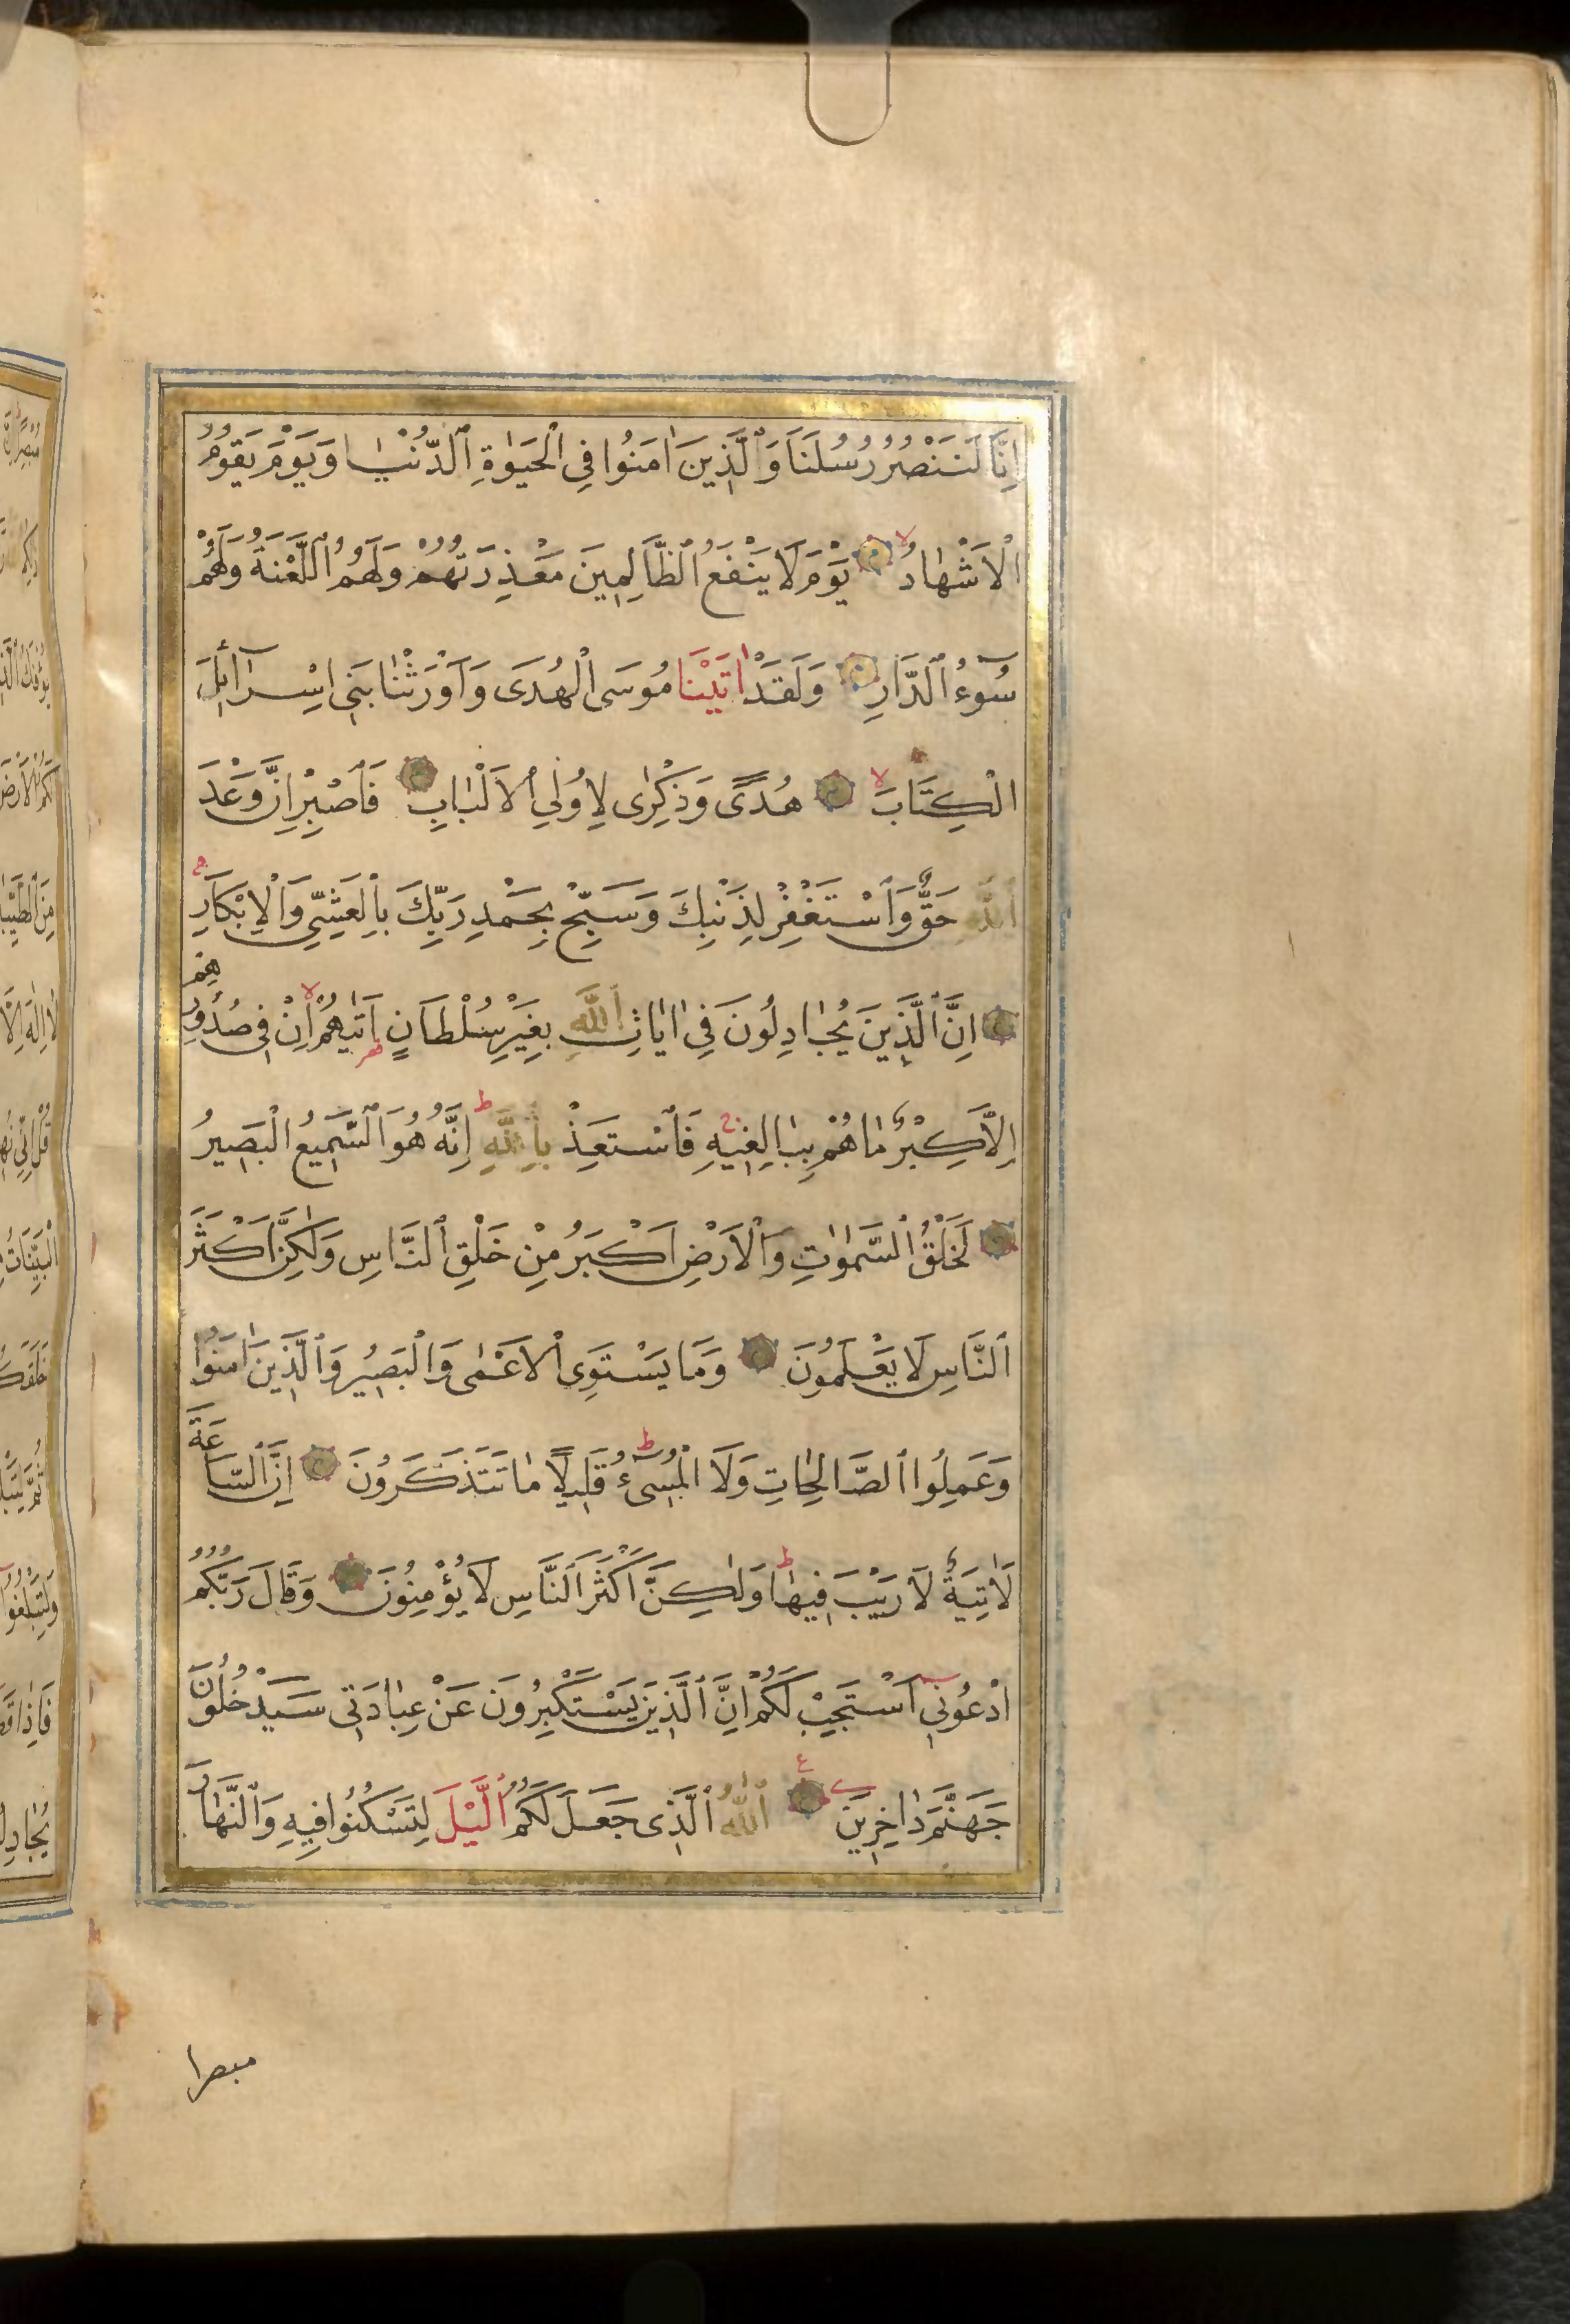 اِنَّا لَنَنْصُرُ رُسُلَنَا وَٱلَّذِينَ اٰمَنُوا فِي ٱلْحَيٰوةِ ٱلدُّنْيٰا وَيَوْمَ يَقُومُ
ٱلْاَشْهٰادُ يَوْمَ لَا يَنْفَعُ ٱلظَّالِمِينَ مَعْذِرَتُهُمْ وَلَهُمُ ٱللَّعْنَةُ وَلَهُمْ
سُوۤءُ ٱلدَّارِ وَلَقَدْ اٰتَيْنَا مُوسَى ٱلْهُدَى وَاَوْرَثْنٰا بَنِي اِسْرَآئِلَ
الْكِتَابَ هُدًى وَذِكْرٰى لِاُولِي ٱلْاَلْبٰابِ فَٱصْبِرْ اِنَّ وَعْدَ
ٱللّٰهِ حَقٌّ وَٱسْتَغْفِرْ لِذَنْبِكَ وَسَبِّحْ بِحَمْدِ رَبِّكَ بِٱلْعَشِيِّ وَٱلْاِبْكَارِ
اِنَّ ٱلَّذِينَ يُجٰادِلُونَ فِي اٰيٰاتِ ٱللّٰهِ بِغَيْرِ سُلْطَانٍ اَتٰيهُمْ اِنْ فِي صُدُورِهِمْ
اِلَّا كِبْرٌ مٰا هُمْ بِبٰالِغِيهِ فَٱسْتَعِذْ بِٱللّٰهِ اِنَّهُ هُوَ ٱلسَّمِيعُ الْبَصِيرُ
لَخَلْقُ ٱلسَّمٰوٰتِ وَٱلْاَرْضِ اَكْبَرُ مِنْ خَلْقِ ٱلنَّاسِ وَلٰكِنَّ اَكْثَرَ
ٱلنَّاسِ لَا يَعْلَمُونَ وَمَا يَسْتَوِي ٱلْاَعْمٰى وَالْبَصِيرُ وَٱلَّذِينَ اٰمَنُوا
وَعَمِلُوا ٱلصَّالِحٰاتِ وَلَا الْمُسِيۤءُ قَلِيلًا مٰا تَتَذَكَّرُونَ اِنَّ ٱلسَّاعَةَ
لَاٰتِيَةٌ لَا رَيْبَ فِيهٰا وَلٰكِنَّ اَكْثَرَ ٱلنَّاسِ لَا يُؤْمِنُونَ وَقَالَ رَبُّكُمُ
ادْعُونِي اَسْتَجِبْ لَكُمْ اِنَّ ٱلَّذِينَ يَسْتَكْبِرُونَ عَنْ عِبٰادَتِي سَيَدْخُلُونَ
جَهَنَّمَ دٰاخِرِينَ ٱللّٰهُ ٱلَّذِي جَعَلَ لَكُمُ ٱلَّيْلَ لِتَسْكُنُوا فِيهِ وَٱلنَّهٰارَ
مبصرا